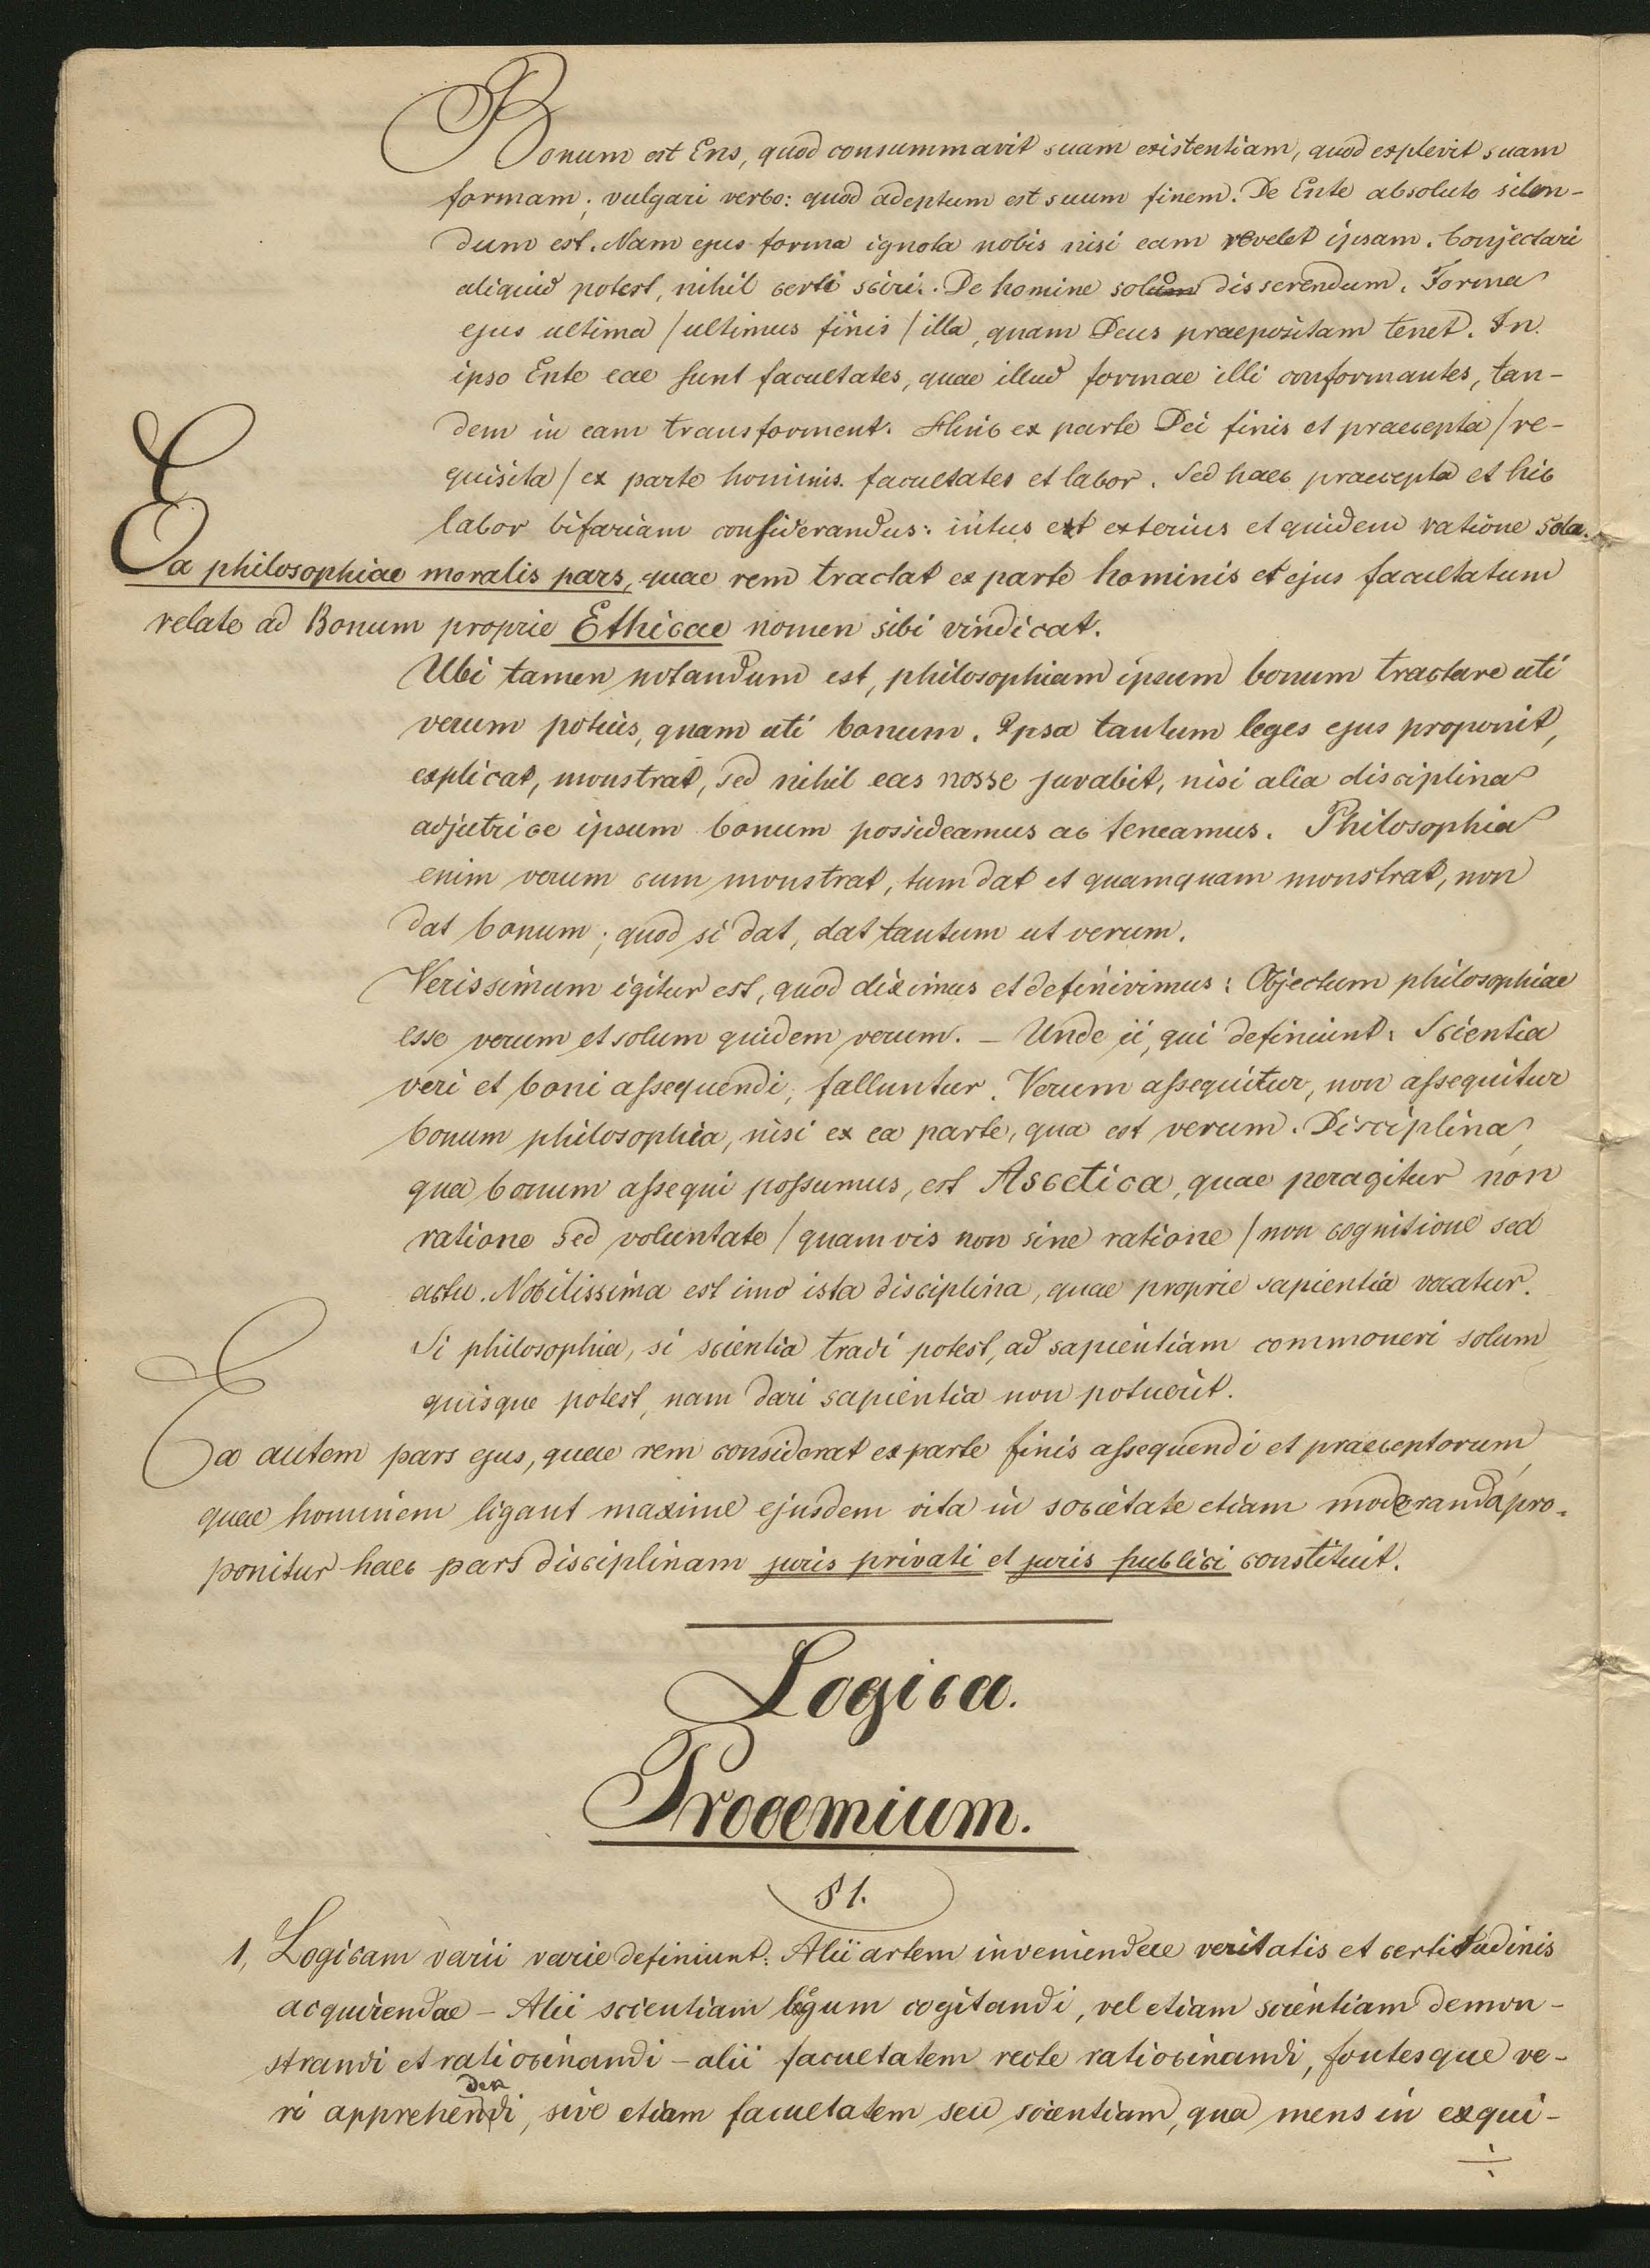 Bonum est Ens, quod consummavit suam existentiam, quod explevit suam
formam; vulgari verbo: quod adeptum est suum finem. De Ente absoluto silen-
dum est. Nam ejus forma ignota nobis nisi eam revelet ipsam. Conjectari
aliquid potest, nihil certi sciri. De homine solum disserendum. Forma
ejus ultima / ultimus finis / illa, quam Deus praepositam tenet. In
ipso Ente eae sunt facultates, quae illud formae illi conformantes, tan-
dem in eam transforment. Hinc ex parte Dei finis et praecepta / re-
quisita / ex parte hominis facultates et labor. Sed haec praecepta et hic
labor bifariam considerandus: intus et exterius et quidem ratione sola.
Ea philosophiae moralis pars, quae rem tractat ex parte hominis et ejus facultatum
relate ad Bonum proprie Ethicae nomen sibi vindicat.
Ubi tamen notandum est, philosophiam ipsum bonum tractare uti
verum potius, quam uti bonum. Ipsa tantum leges ejus proponit,
explicat, monstrat, sed nihil eas nosse juvabit, nisi alia disciplina
adjutrice ipsum bonum possideamus ac teneamus. Philosophia
enim verum cum monstrat, tum dat et quamquam monstrat, non
dat bonum; quod si dat, dat tantum ut verum.
Verissimum igitur est, quod diximus et definivimus: Objectum philosophiae
esse verum et solum quidem verum. – Unde ii, qui definiunt: Scientia
veri et boni assequendi, falluntur. Verum assequitur, non assequitur
bonum philosophia, nisi ex ea parte, qua est verum. Disciplina,
qua bonum assequi possumus, est Ascetica, quae peragitur non
ratione sed voluntate / quamvis non sine ratione / non cognitione sed
actu. Nobilissima est imo ista disciplina, quae proprie sapientia vocatur.
Si philosophia, si scientia tradi potest, ad sapientiam commoneri solum
quisque potest, nam dari sapientia non potuerit.
Ea autem pars ejus, quae rem considerat ex parte finis assequendi et praeceptorum,
quae hominem ligant maxime ejusdem vita in societate etiam moderanda, pro-
ponitur haec pars disciplinam juris privati et juris publici constituit.
Logica.
Prooemium.
§ 1.
1, Logicam varii varie definiunt: Alii artem inveniendae veritatis et certitudinis
acquirendae – Alii scientiam legum cogitandi, vel etiam scientiam demon-
strandi et ratiocinandi – alii facultatem recte ratiocinandi, fontesque ve-
ri apprehendendi, sive etiam facultatem seu scientiam, qua mens in exqui-